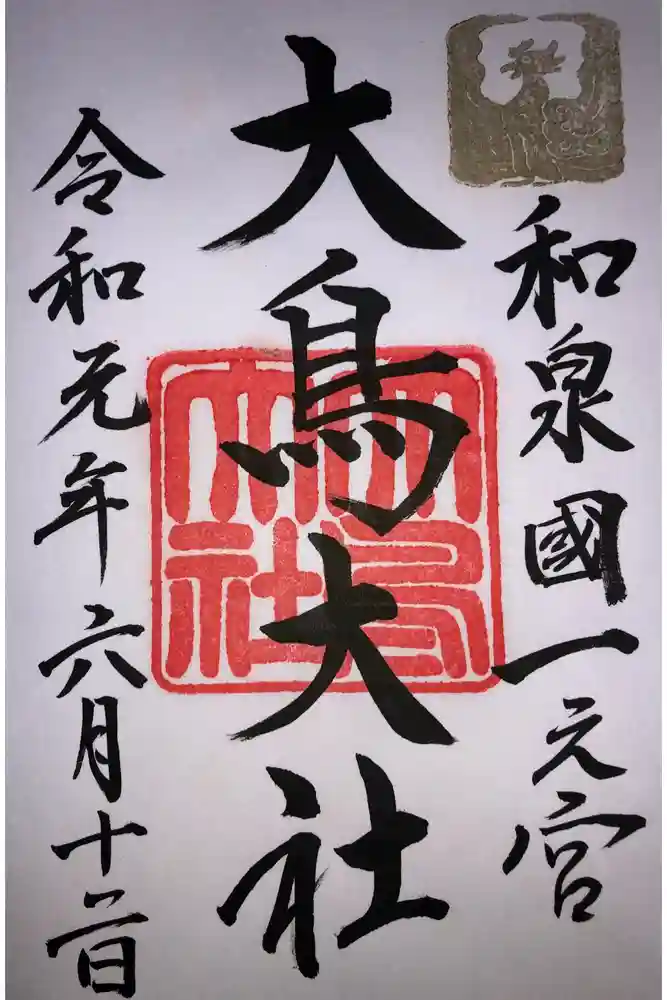 和泉國一之宮
大鳥大社
令和元年六月十二日
大鳥
大社